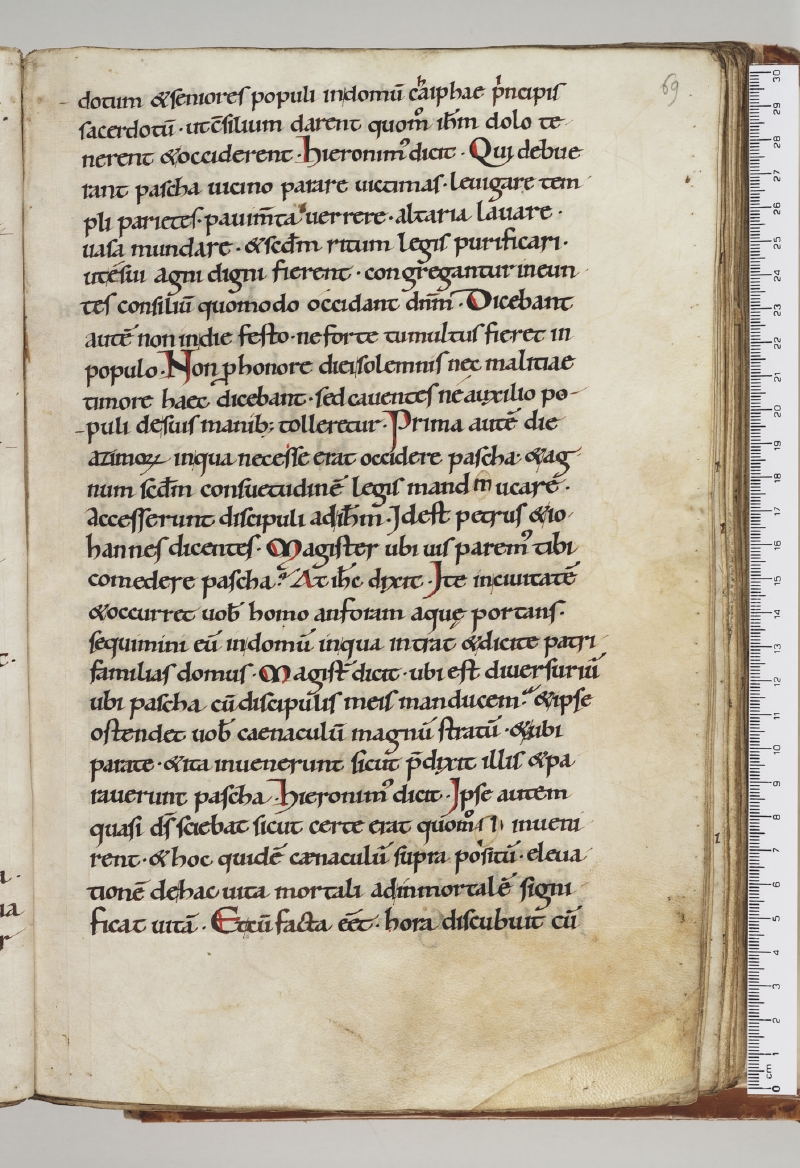 69
dotum &seniores populi indomū caiphae pͥncipis
sacerdotū · utc̄silium darent quom̊ ih̄m dolo te-
nerent &occiderent · hieronim᾽ dicit · Qui debue
rant pascha uicino parare uictimas · leuigare tem
pli parietes · pauim̄ta uerrere · altaria lauare ·
uasa mundare · &scd̄m ritum legis purificari ·
utesui agni digni fierent · congregantur ineun
tes consiliū quomodo occidant dn̄m · Dicebant
autē non indie festo · neforte tumultus fieret in
populo · Non ꝑhonore diei solemnis nec malitiae
timore haec dicebant · sed cauentes ne auxilio po-
puli desuis manib; tolleretur · Prima autē die
azimoꝝ inqua necesse erat occidere pascha · &ag
num scd̄m consuetudinē legis manducare ·
Accesserunt discipuli adih̄m · Idest petrus &io
hannes dicentes · Magister ubi uis parem᾽ tibi
comedere pascha? At ih̄c dixit · Ite inciuitatē
&occurret uob̄ homo anforam aquę portans ·
sequimini eū indomū inqua intrat &dicite patri
familias domus · Magist̄ dicit · ubi est diuersuriū
ubi pascha cū discipulis meis manducem? &ipse
ostendet uob̄ caenaculū magnū stratū · &ibi
parate · &ita inuenerunt sicut p̄dixit illis &pa
rauerunt pascha · hieronim᾽ dicit · Ipse autem
quasi ds̄ sciebat sicut certe erat quom̊ inueni
rent · &hoc quidē cænaculū supra positū · eleua
tionē dehac uita mortali adinmortalē signi
ficat uitā · Etcū facta eēt · hora discubuit cū